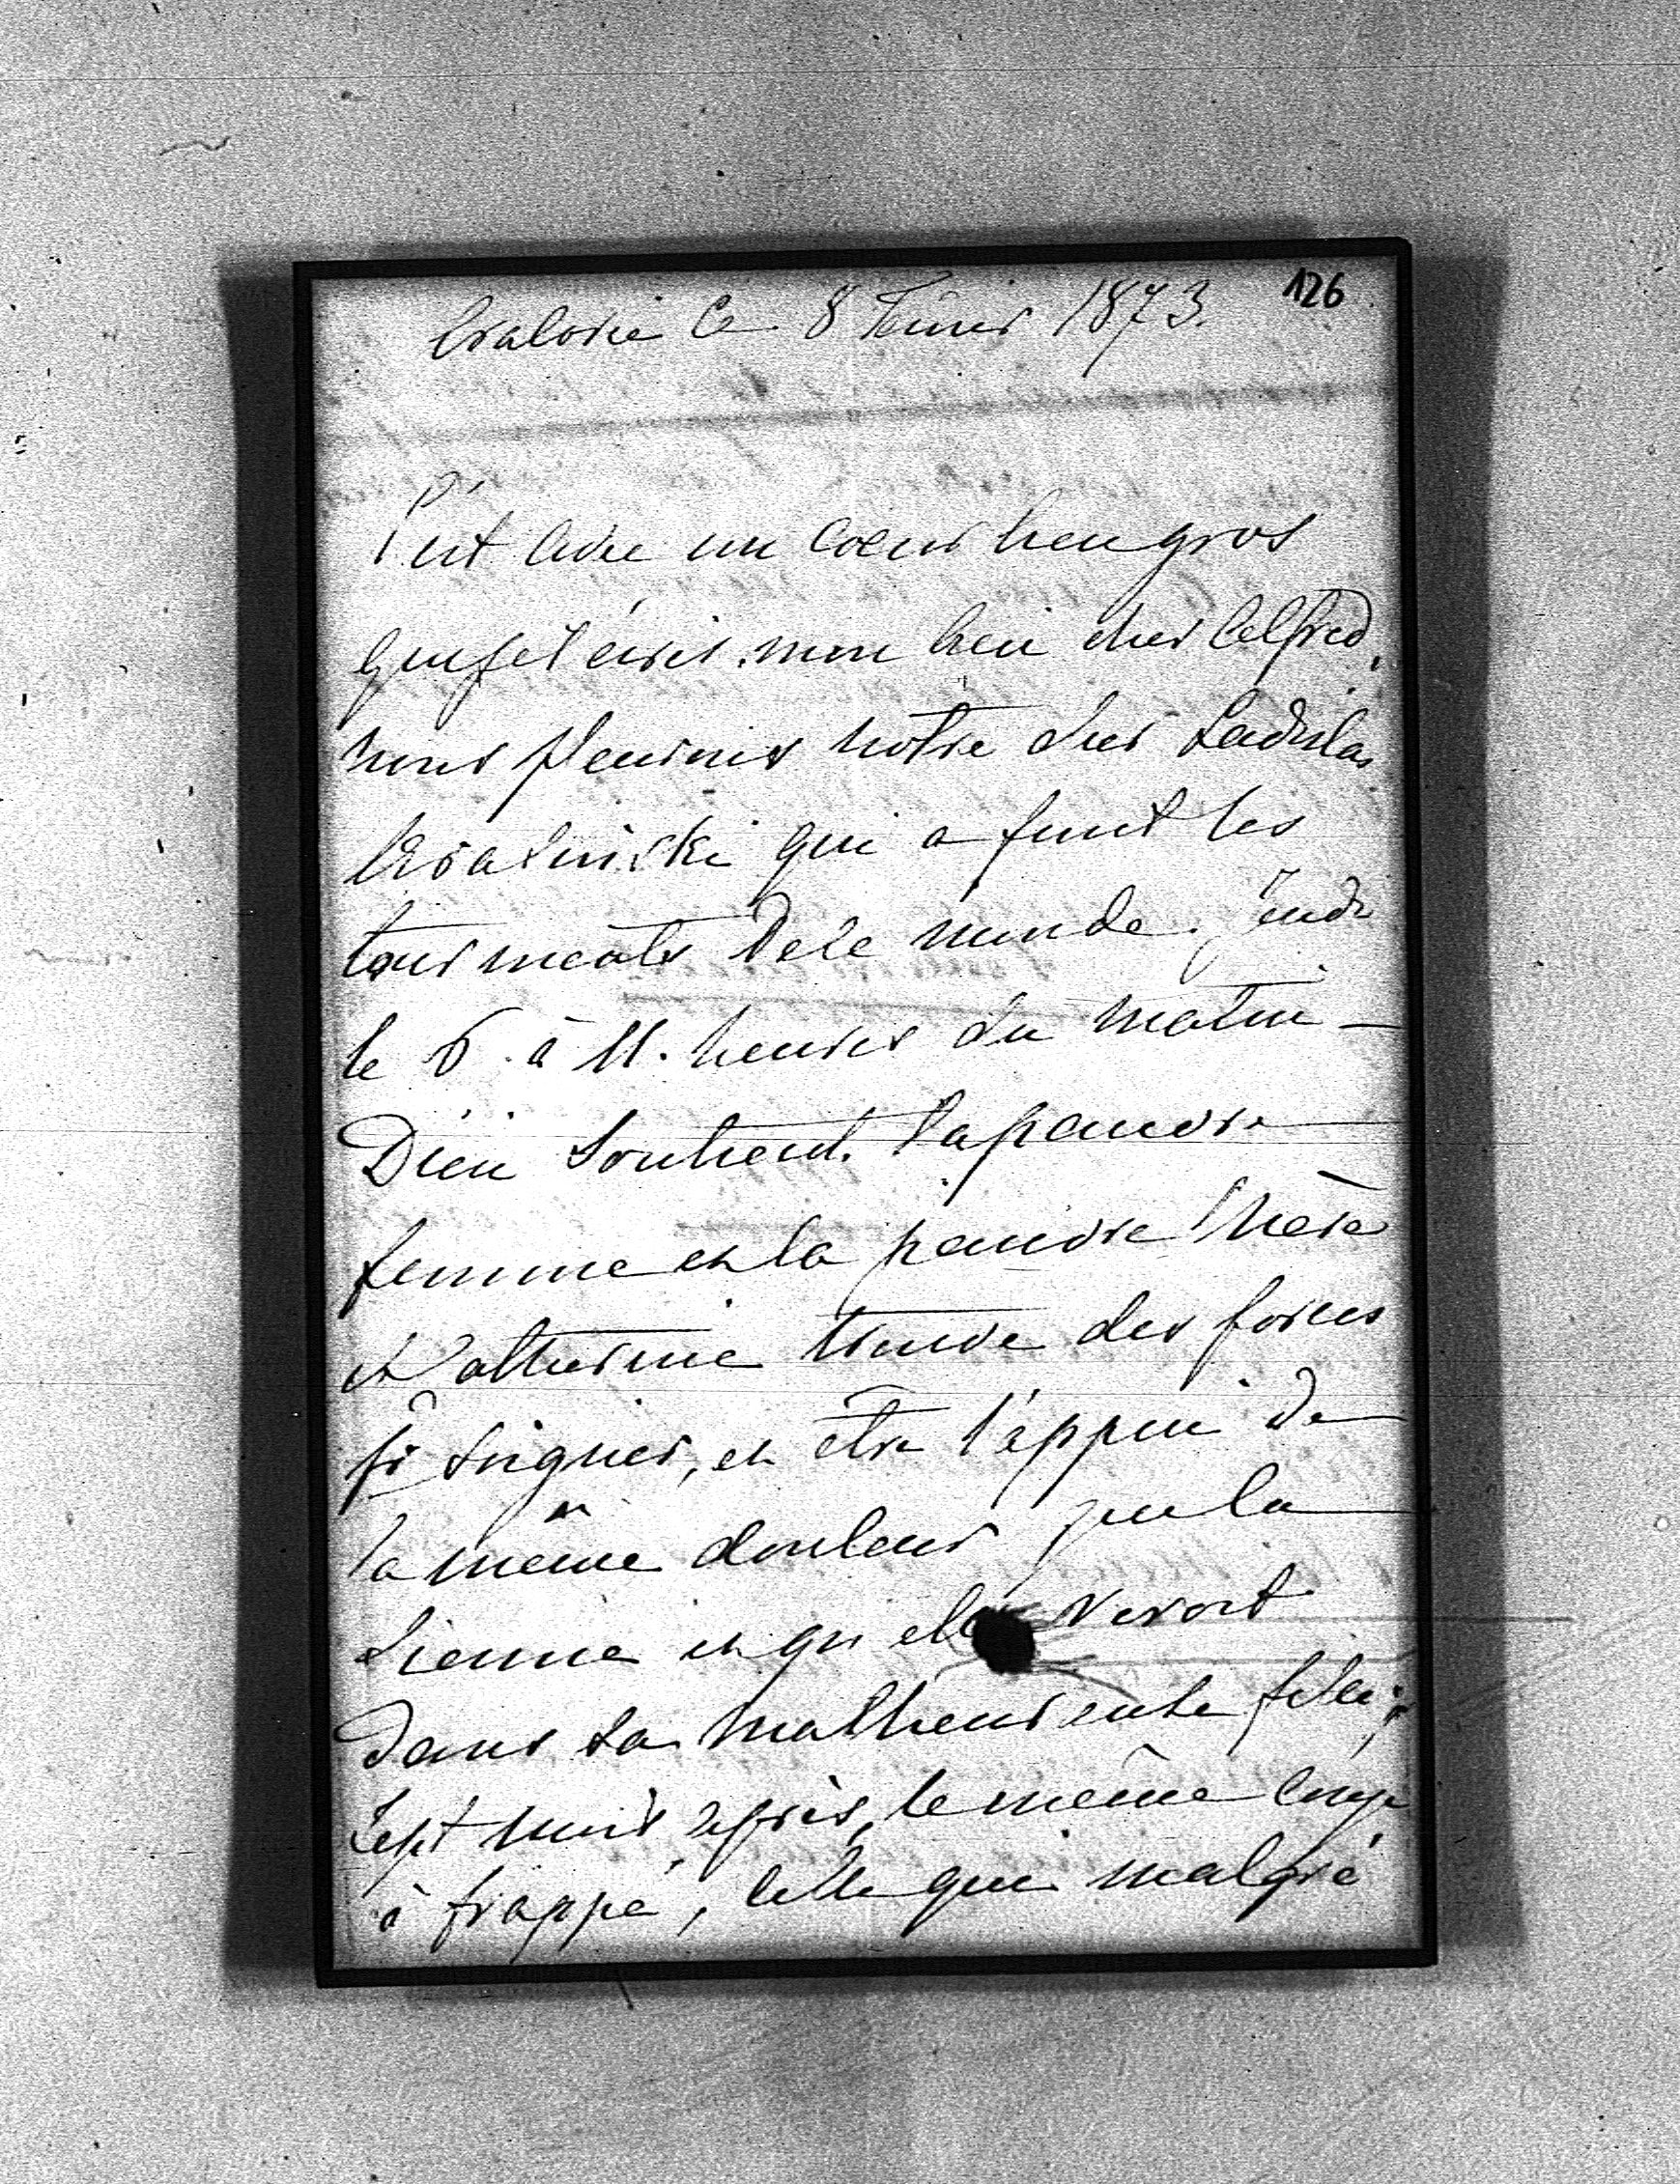 126
Cracovie Ce 8 Fevrier 1873.
C'est avec un coeur bien gros
que je t'ecris, mon bien cher Alfred,
nous pleurons notre cher Ladislas
qui a finit les
tourments de ce monde. Jeudi
le 6. à 11. heures du matin —
Dieu soutient la pauvre
femme et la pauvre Mère
et Catherine trouve des forces
soigner, et être l'appui de
la même douleur que la
sienne et qu'elle revoit
dans sa malheureuse fille;
Sept mois après, le même coup
à frappé, celle qui malgré